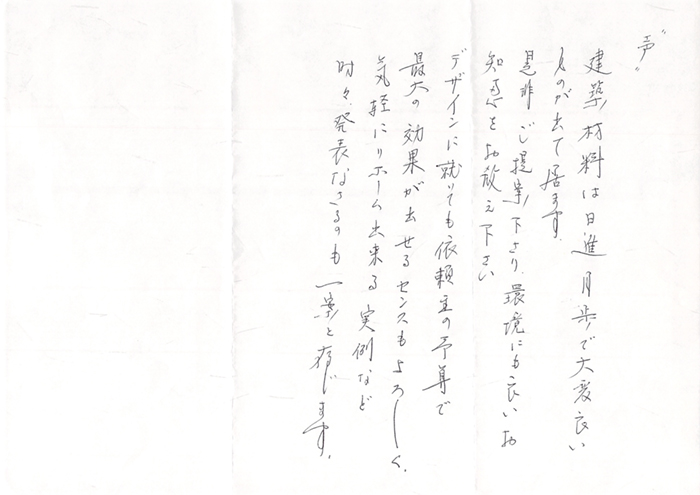 "声"
建築材料は日進月歩で大変良い
ものが出て居ます。
是非ご提案下さり、環境にも良いお
知恵をお教え下さい
デザインに就いても依頼主の予算で
最大の効果が出せるセンスもよろしく、
気軽にリホーム出来る実例など
時々発表なさるのも一案と存じます。